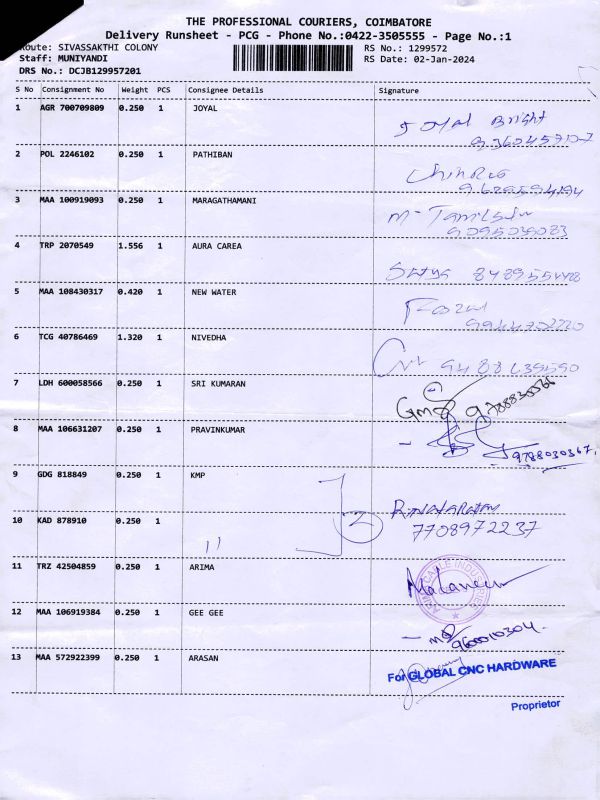 THE PROFESSIONAL COURIERS, COIMBATORE
Delivery Runsheet - PCG - Phone No.:0422-3505555 - Page No.:1
Route: SIVASSAKTHI COLONY RS No.: 1299572
Staff: MUNIYANDI RS Date: 02-Jan-2024
DRS No.: DCJB129957201
S No Consignment No Weight PCS Consignee Details Signature
1 AGR 700709809 0.250 1 JOYAL Joyal Bright
2 POL 2246102 0.250 1 PATHIBAN
3 MAA 100919093 0.250 1 MARAGATHAMANI
9095039083
4 TRP 2070549 1.556 1 AURA CAREA
5 MAA 108430317 0.420 1 NEW WATER
9944702220
6 TCG 40786469 1.320 1 NIVEDHA
7 LDH 600058566 0.250 1 SRI KUMARAN
8 MAA 106631207 0.250 1 PRAVINKUMAR 9788030367.
9 GDG 818849 0.250 1 KMP
7708972237
10 KAD 878910 0.250 1 " 2
11 TRZ 42504859 0.250 1 ARIMA
12 MAA 106919384 0.250 1 GEE GEE
9600010304.
13 MAA 572922399 0.250 1 ARASAN
For GLOBAL CNC HARDWARE
Proprietor